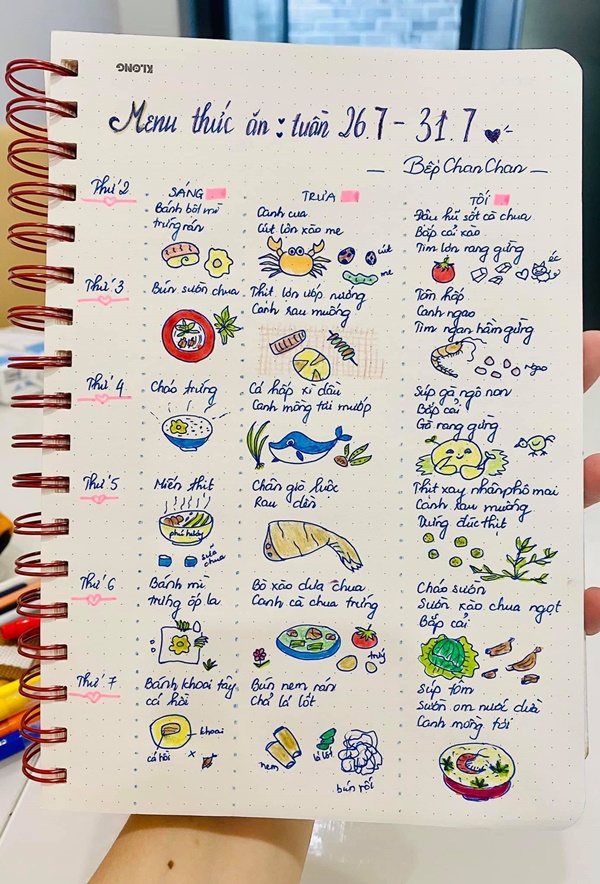 KLONG
Menu thức ăn : tuần 26.7 - 31.7
Bếp Chan Chan
SÁNG
TRƯA
TỐI
Thứ 2
Bánh bột mì
trứng rán
Canh cua
Cút lộn xào me
cút
me
Đậu hũ sốt cà chua
Bắp cải xào
Tim lợn rang gừng
éc
Thứ 3
Bún sườn chua
Thịt lợn ướp nướng
Canh rau muống
Tôm hấp
Canh ngao
Tim ngan hầm gừng
ngao
Thứ 4
Cháo trứng
Cá hấp xì dầu
Canh mồng tơi mướp
Súp gà ngô non
Bắp cải
Gà rang gừng
Thứ 5
Miến thịt
sữa
chua
Chân giò luộc
Rau dền
Thịt xay nhân phô mai
Canh rau muống
Trứng đúc thịt
Thứ 6
Bánh mì
trứng ốp la
Bò xào dưa chua
Canh cà chua trứng
trứng
Cháo sườn
Sườn xào chua ngọt
Bắp cải
Thứ 7
Bánh khoai tây
cá hồi
khoai
cá hồi
Bún nem rán
Chả lá lốt
nem
lá lốt
bún rối
Súp tôm
Sườn om nước dừa
Canh mồng tơi